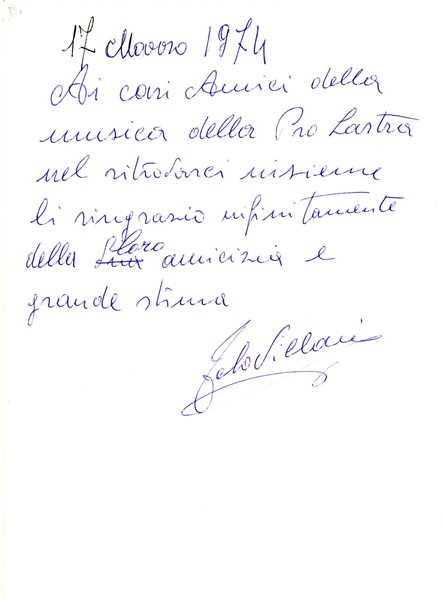 17 Marzo 1974
Ai cari Amici della
musica della Pro Lastra
nel ritrovarci insieme
li ringrazio infinitamente
della loro amicizia e
grande stima